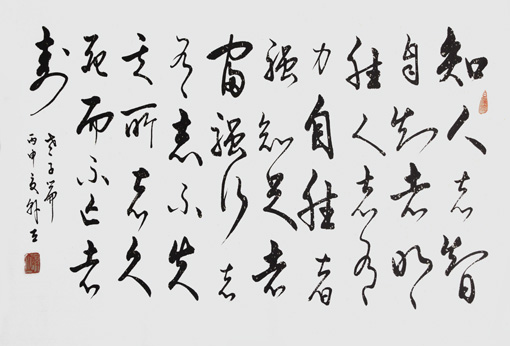 知人者智
自知者明
胜人者有
力自胜者
强知足者
富强行者
有志不失
其所者久
死而不亡者
寿
老子篇
丙申夏